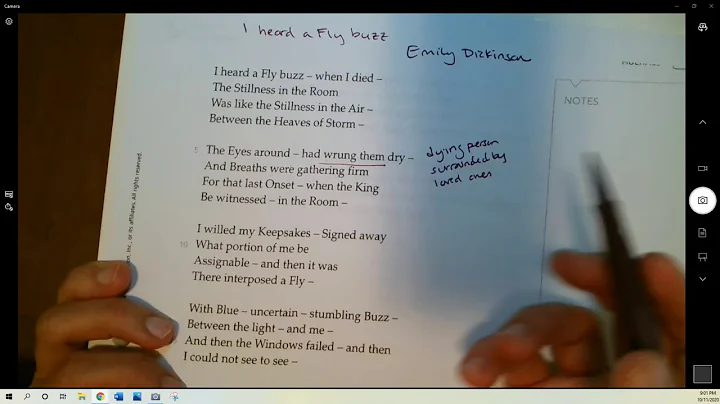 Camera
I heard a Fly buzz
Emily Dickinson
NOTES
I heard a Fly buzz – when I died –
The Stillness in the Room
Was like the Stillness in the Air –
Between the Heaves of Storm –
5 The Eyes around – had wrung them dry –
And Breaths were gathering firm
For that last Onset – when the King
Be witnessed – in the Room –
dying person
surrounded by
loved ones
I willed my Keepsakes – Signed away
10 What portion of me be
Assignable – and then it was
There interposed a Fly –
With Blue – uncertain – stumbling Buzz –
Between the light – and me –
And then the Windows failed – and then
I could not see to see –
Inc., or its affiliates. All rights reserved.
9:01 PM
10/11/2020